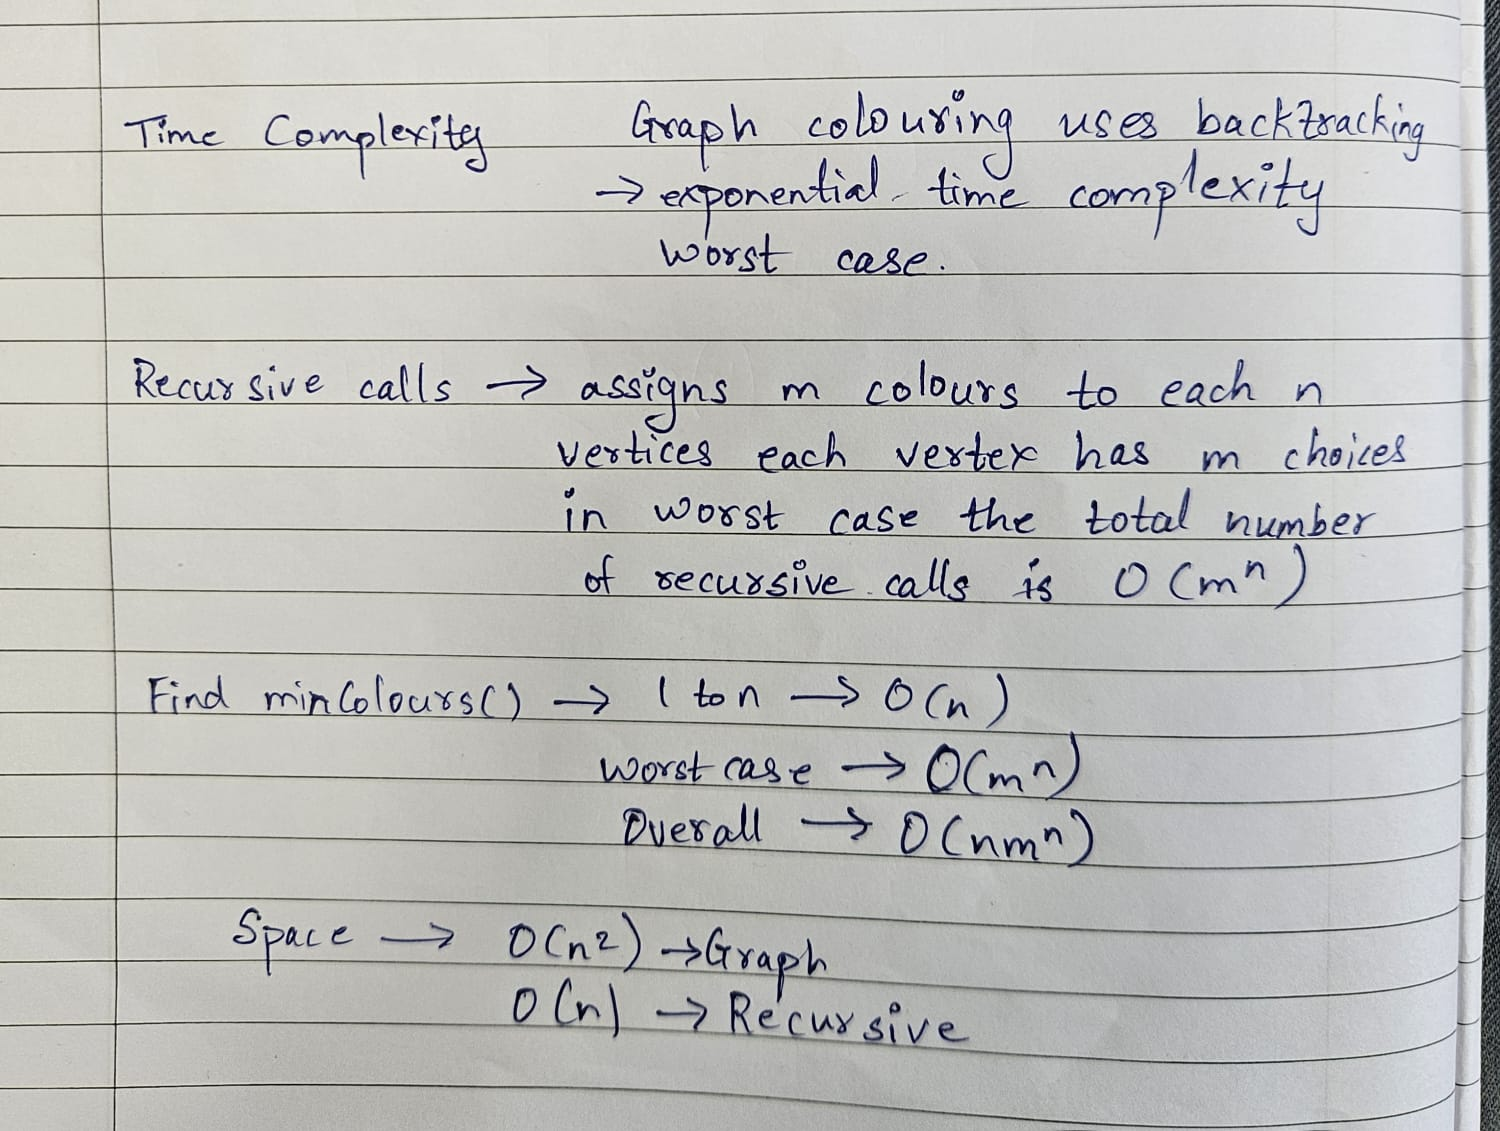 Time Complexity Graph colouring uses backtracking
→ exponential time complexity
worst case.
Recursive calls → assigns m colours to each n
vertices each vertex has m choices
in worst case the total number
of recursive calls is O(mⁿ)
Find minColours() → 1 to n → O(n)
worst case → O(mⁿ)
Overall → O(nmⁿ)
Space → O(n²) → Graph
O(n) → Recursive